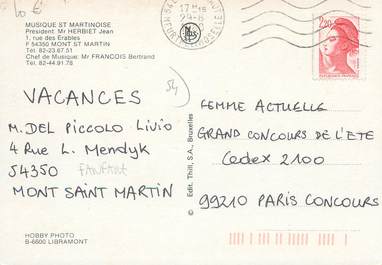 MUSIQUE ST MARTINOISE
President Mr HERBIET Jean
1, rue des Érables
F 54350 MONT ST MARTIN
Tel. 82-23.67.51
Chef de Musique: Mr FRANCOIS Bertrand
Tel. 82-44.91.78
54
VACANCES
M. DEL PICCOLO LIVIO
4 Rue L. Mendyk
54350
FANFARE
MONT SAINT MARTIN
HOBBY PHOTO
B-6600 LIBRAMONT
© Edit. Thill, S.A., Bruxelles
17 H
2,20
FEMME ACTUELLE
GRAND CONCOURS DE L'ETE
Cedex 2100
99210 PARIS CONCOURS